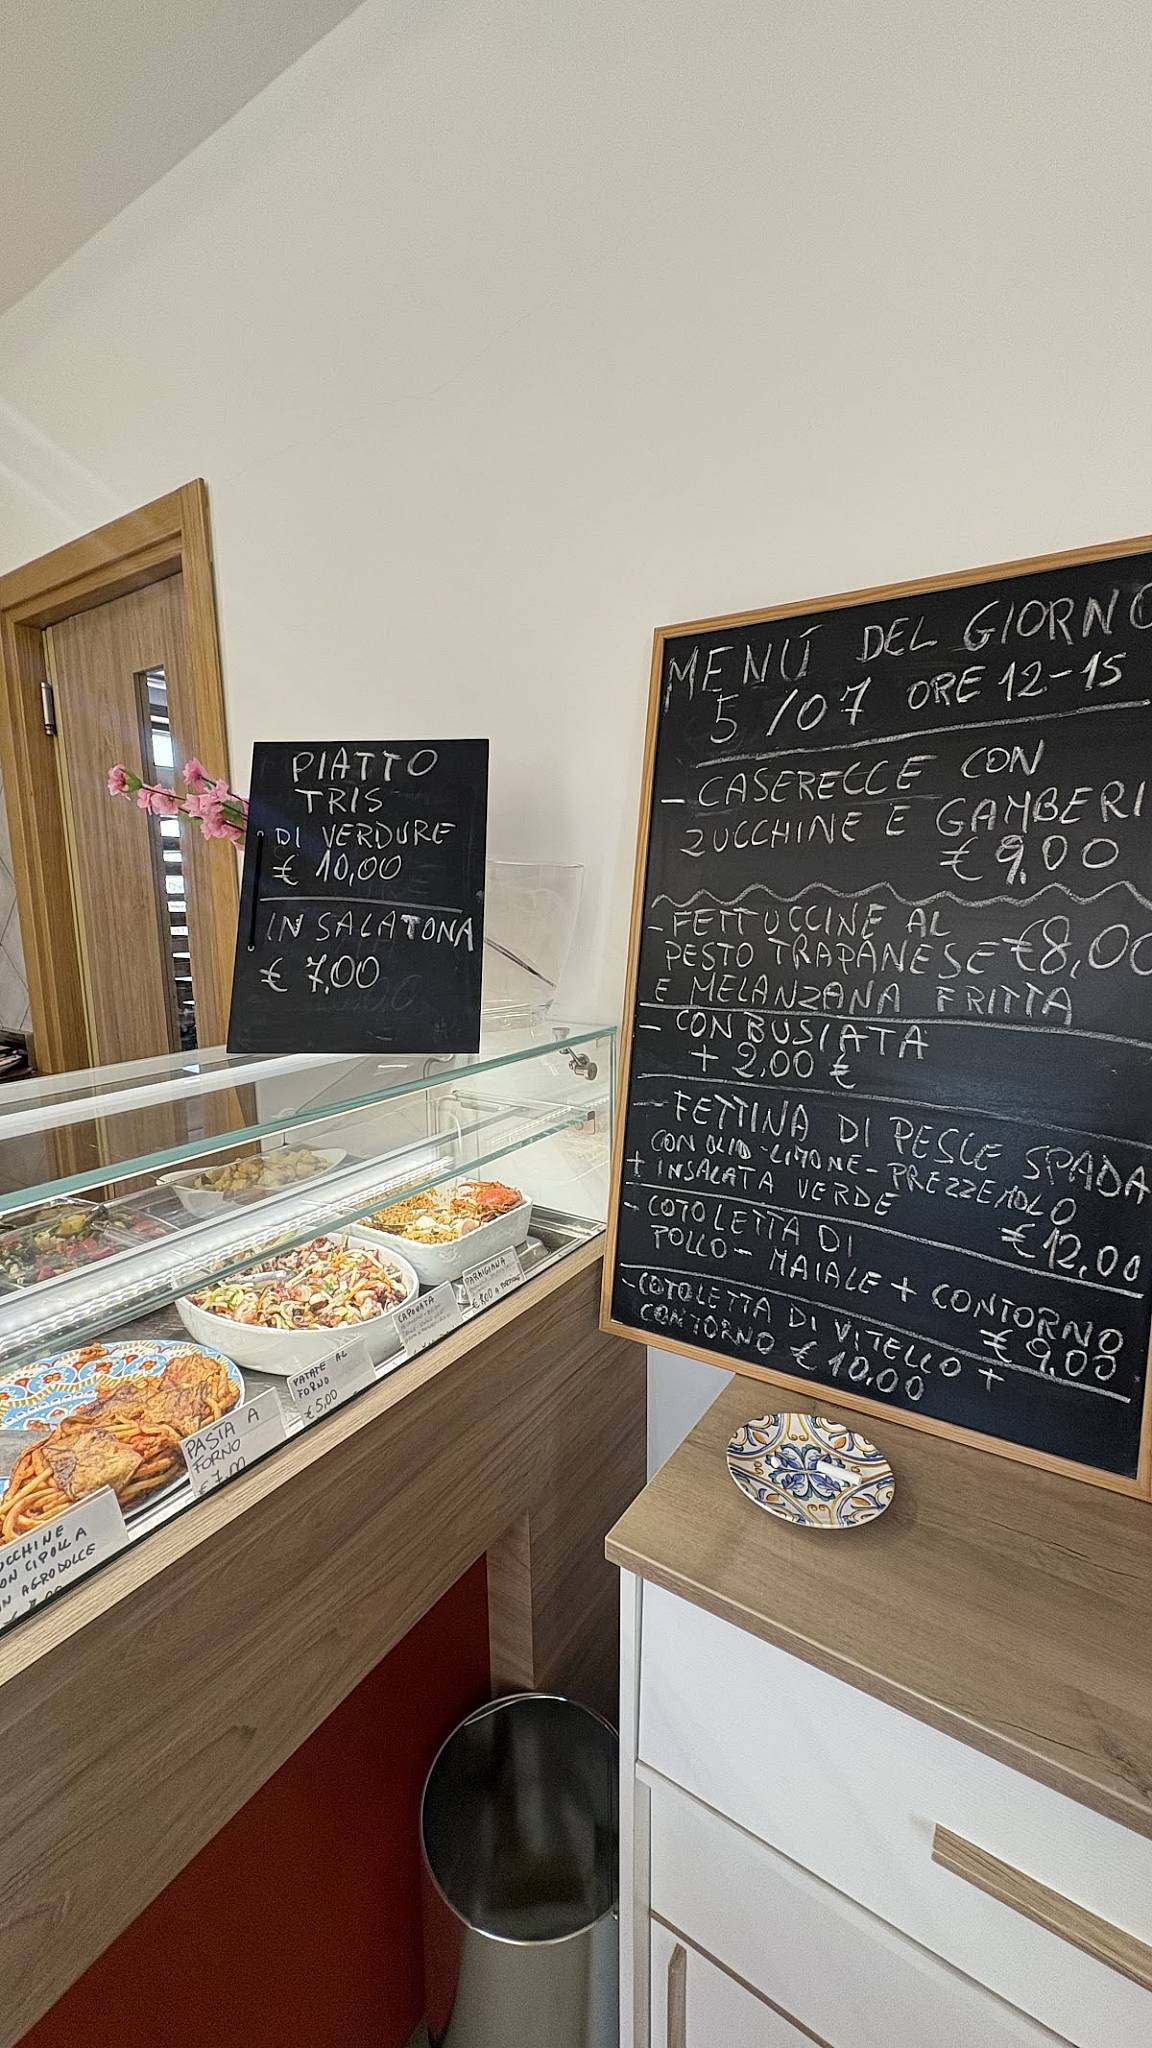 PIATTO
TRIS
DI VERDURE
€ 10,00
INSALATONA
€ 7,00
MENÚ DEL GIORNO
5 /07 ORE 12-15
- CASERECCE CON
ZUCCHINE E GAMBERI
€ 9,00
- FETTUCCINE AL
PESTO TRAPANESE €8,00
E MELANZANA FRITTA
- CON BUSIATA
+ 2,00 €
- FETTINA DI PESCE SPADA
CON OLIO-LIMONE-PREZZEMOLO
+ INSALATA VERDE
€ 12,00
- COTOLETTA DI
POLLO - MAIALE + CONTORNO
€ 9,00
- COTOLETTA DI VITELLO +
CONTORNO € 10,00
PARMIGIANA
CAPONATA
PATATE AL
FORNO
€ 5,00
PASTA A
FORNO
UCCHINE
ON CIPOLLA
IN AGRODOLCE